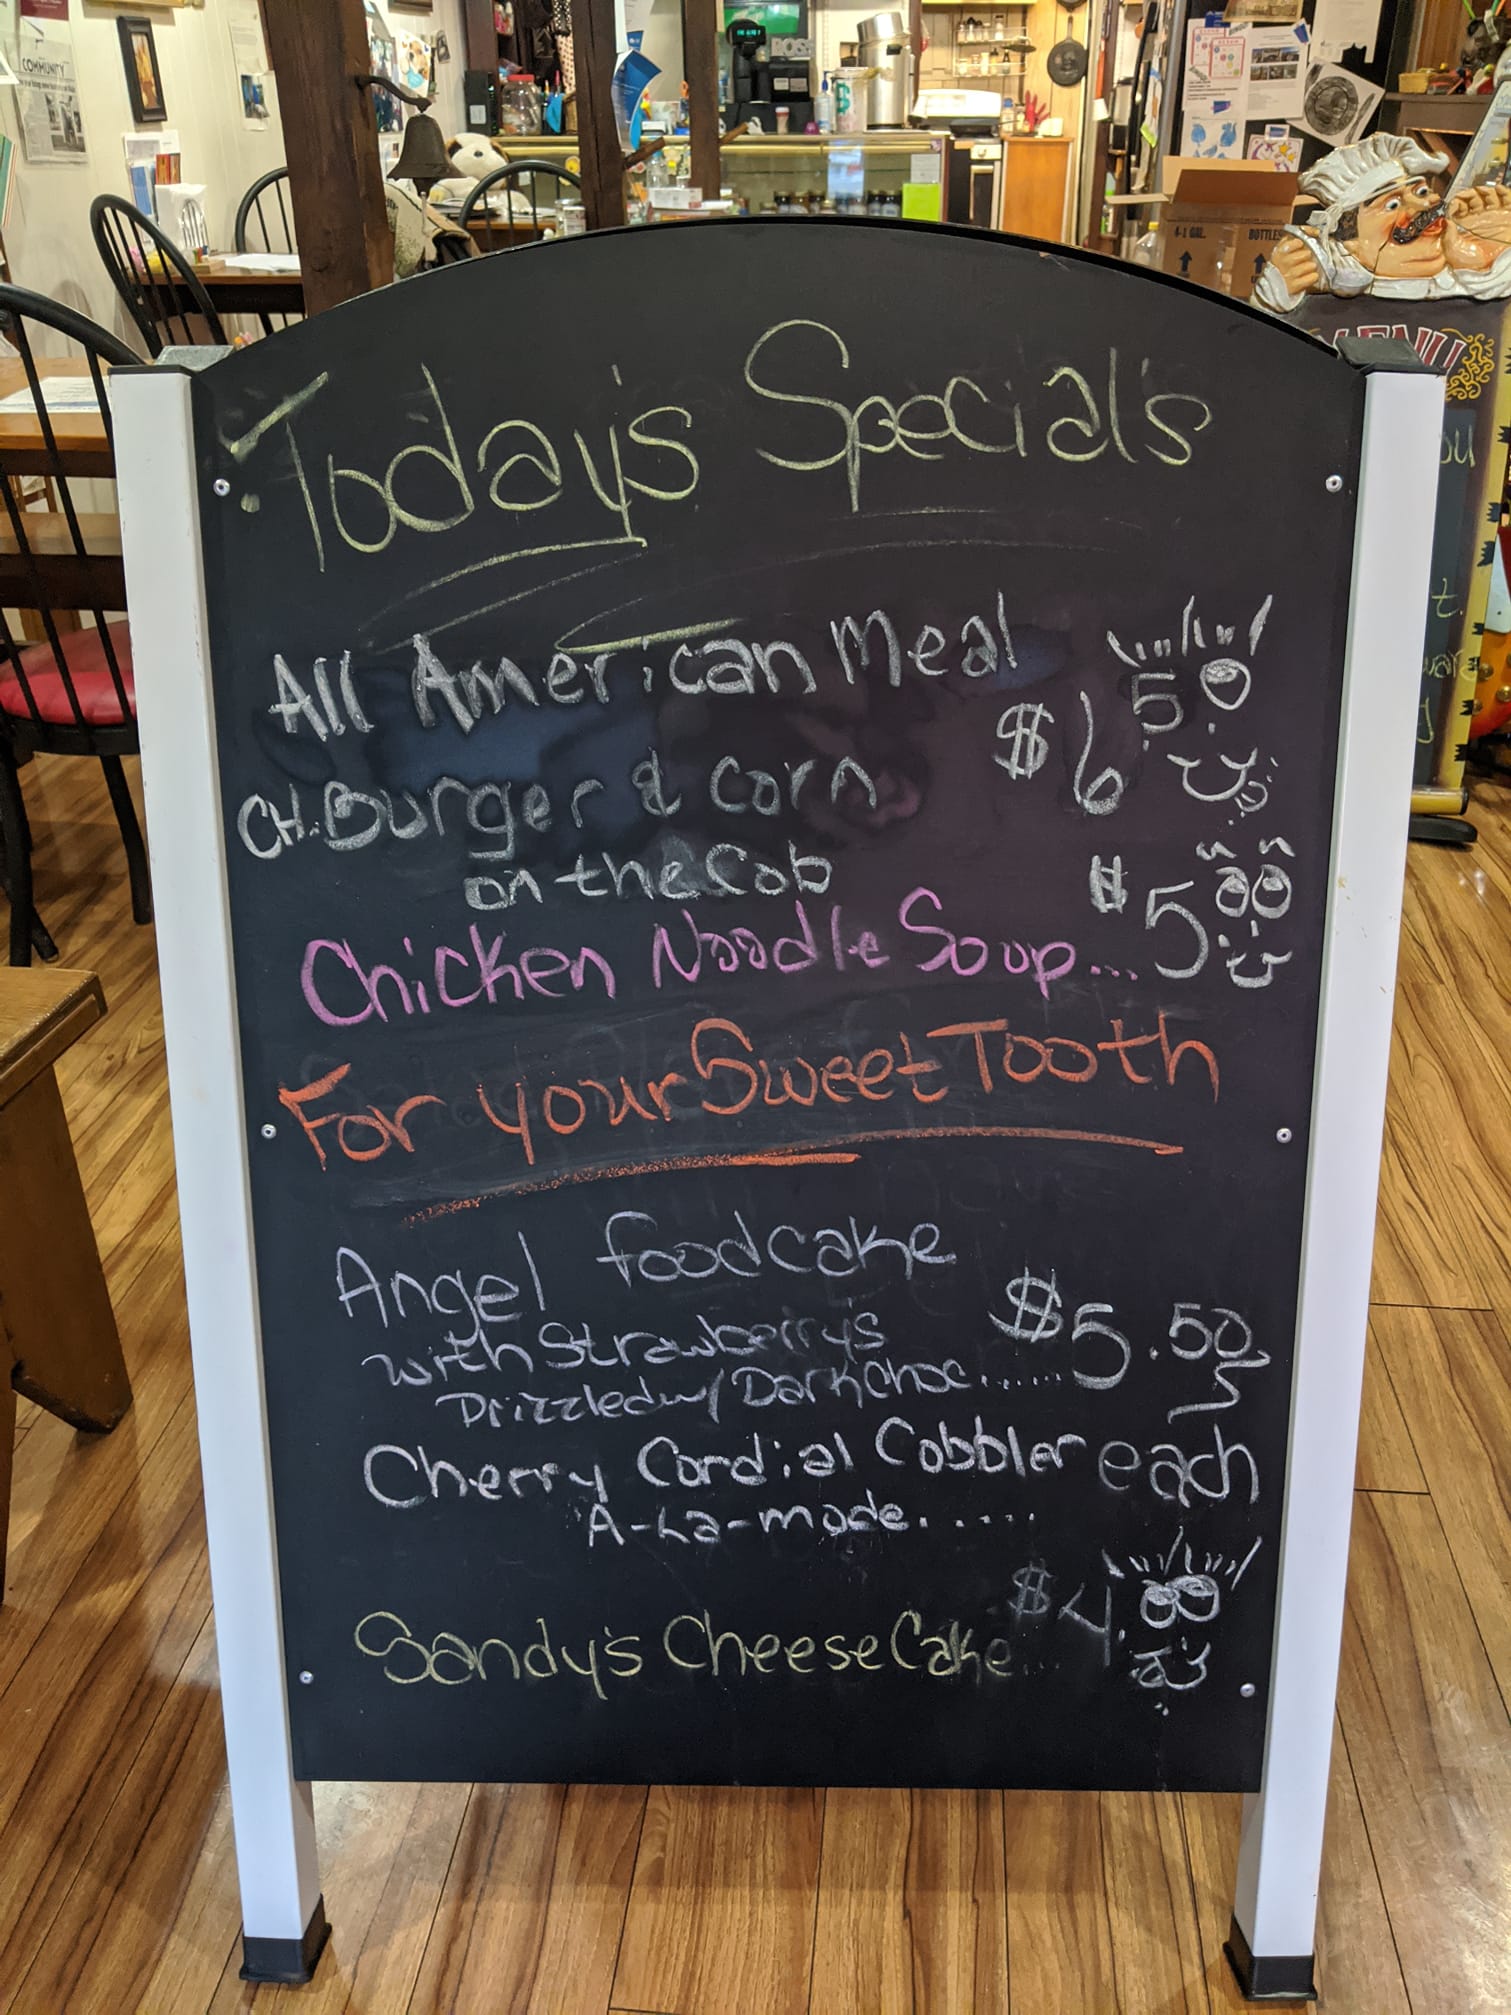 COMMUNITY
BOSE
4-1 GAL.
BOTTLES
MENU
Today's Special's
All American Meal
$6.50
CH. Burger & Corn
on the Cob
Chicken Noodle Soup... $5.00
For your Sweet Tooth
Angel foodcake
with Strawberry's $5.50
Drizzled w/ Dark Choc......
Cherry Cordial Cobbler each
A-La-mode......
Sandy's Cheese Cake... $4.00